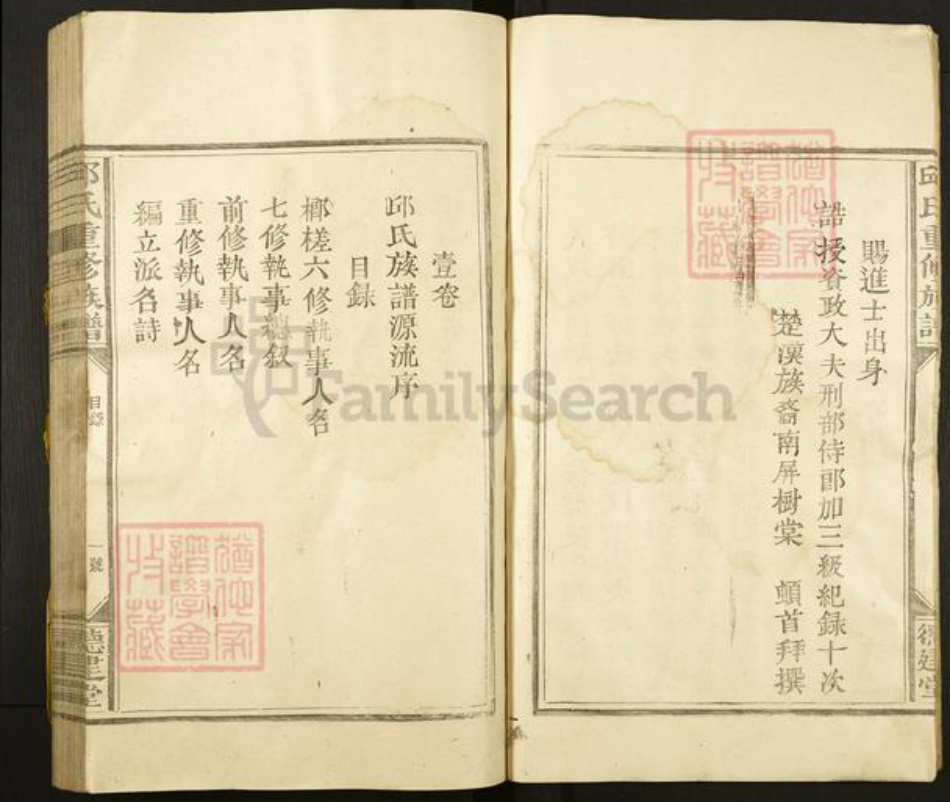 邱氏重修族譜
德建堂
賜進士出身
誥授資政大夫刑部侍郎加三級紀錄十次
楚漢族裔南屏樹棠　頓首拜撰
猶他家譜學會收藏
壹卷
邱氏族譜源流序
目録
榔槎六修執事人名
七修執事總叙
前修執事人名
重修執事人名
編立派名詩
猶他家譜學會收藏
邱氏重修族譜
目錄
一號
德建堂
FamilySearch